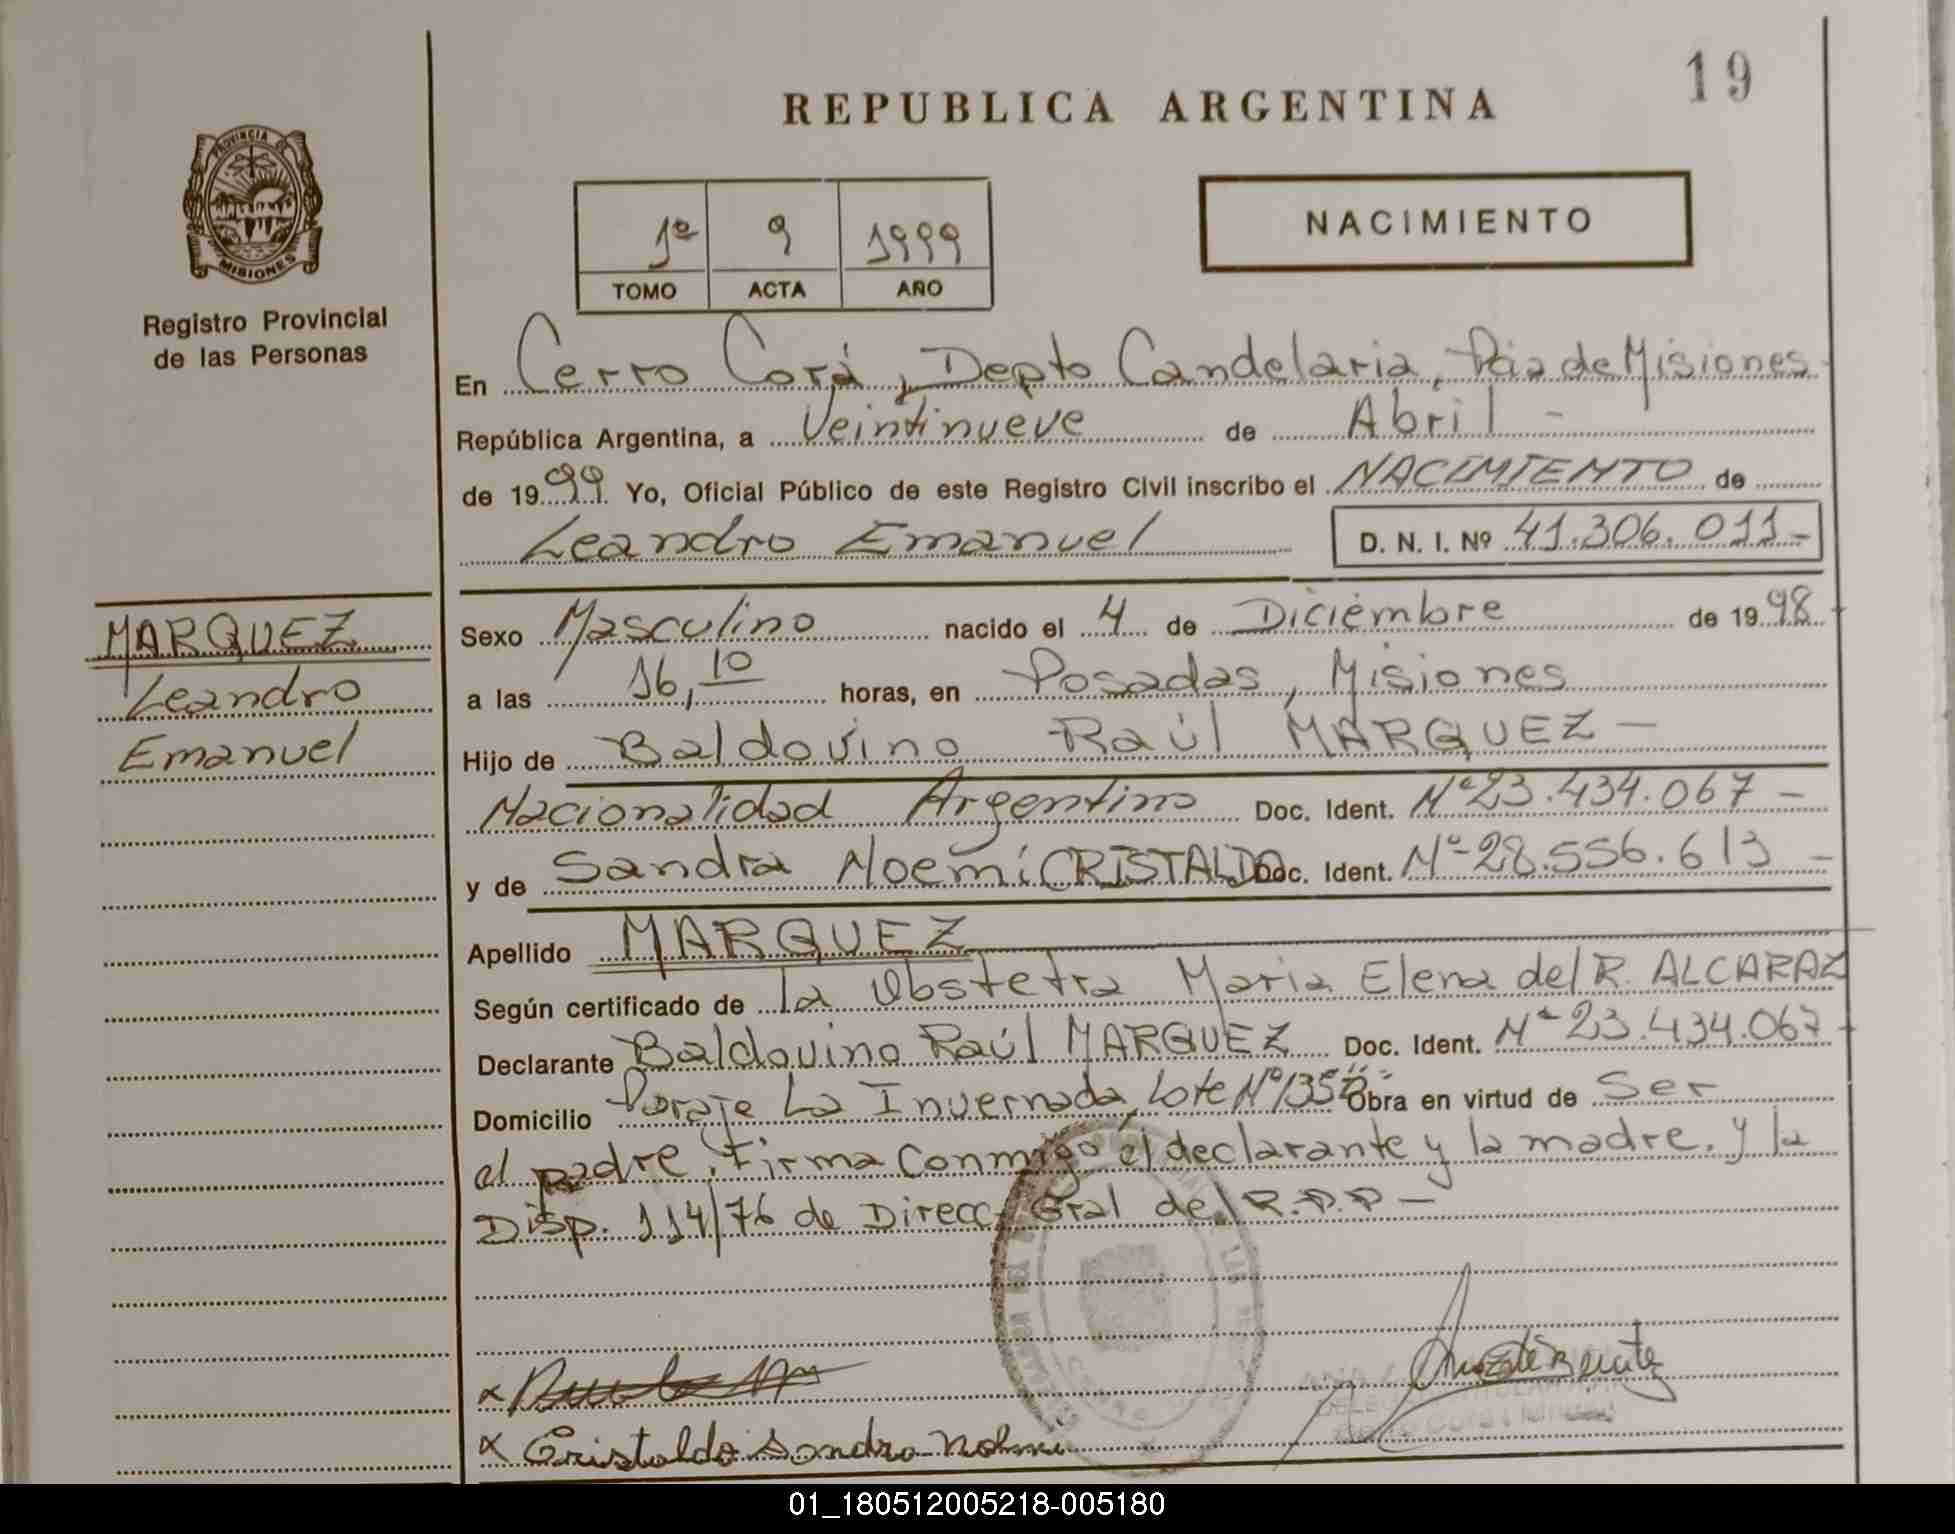 19
REPUBLICA ARGENTINA
PROVINCIA DE
MISIONES
Registro Provincial
de las Personas
1º 9 1999
TOMO ACTA AÑO
NACIMIENTO
En Cerro Corá, Depto Candelaria, Pcia de Misiones
República Argentina, a Veintinueve de Abril -
de 1999 Yo, Oficial Público de este Registro Civil inscribo el NACIMIENTO de
Leandro Emanuel D. N. I. Nº 41.306.011-
MARQUEZ
Leandro
Emanuel
Sexo Masculino nacido el 4 de Diciembre de 1998-
a las 16,10 horas, en Posadas, Misiones
Hijo de Baldovino Raúl MARQUEZ -
Nacionalidad Argentino Doc. Ident. Nº 23.434.067 -
y de Sandra Noemí CRISTALDO Doc. Ident. Nº 28.556.613 -
Apellido MARQUEZ
Según certificado de la Obstetra Maria Elena del R. ALCARAZ
Declarante Baldovino Raúl MARQUEZ Doc. Ident. Nº 23.434.067-
Domicilio Paraje La Invernada, Lote Nº Obra en virtud de Ser
el padre. Firma conmigo el declarante y la madre. y la
Disp. 114/76 de Direcc. Gral del R.P.P -
x
x Cristaldo Sandra
01_180512005218-005180